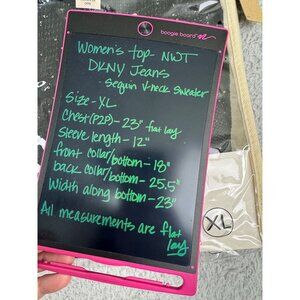 boogie board
Women's top- NWT
DKNY Jeans
- Sequin V-neck Sweater
Size - XL
Chest (P2P) - 23" flat lay
Sleeve length - 12"
front collar/bottom - 18"
back collar/bottom - 25.5"
Width along bottom - 23"
All measurements are flat
lay
XL